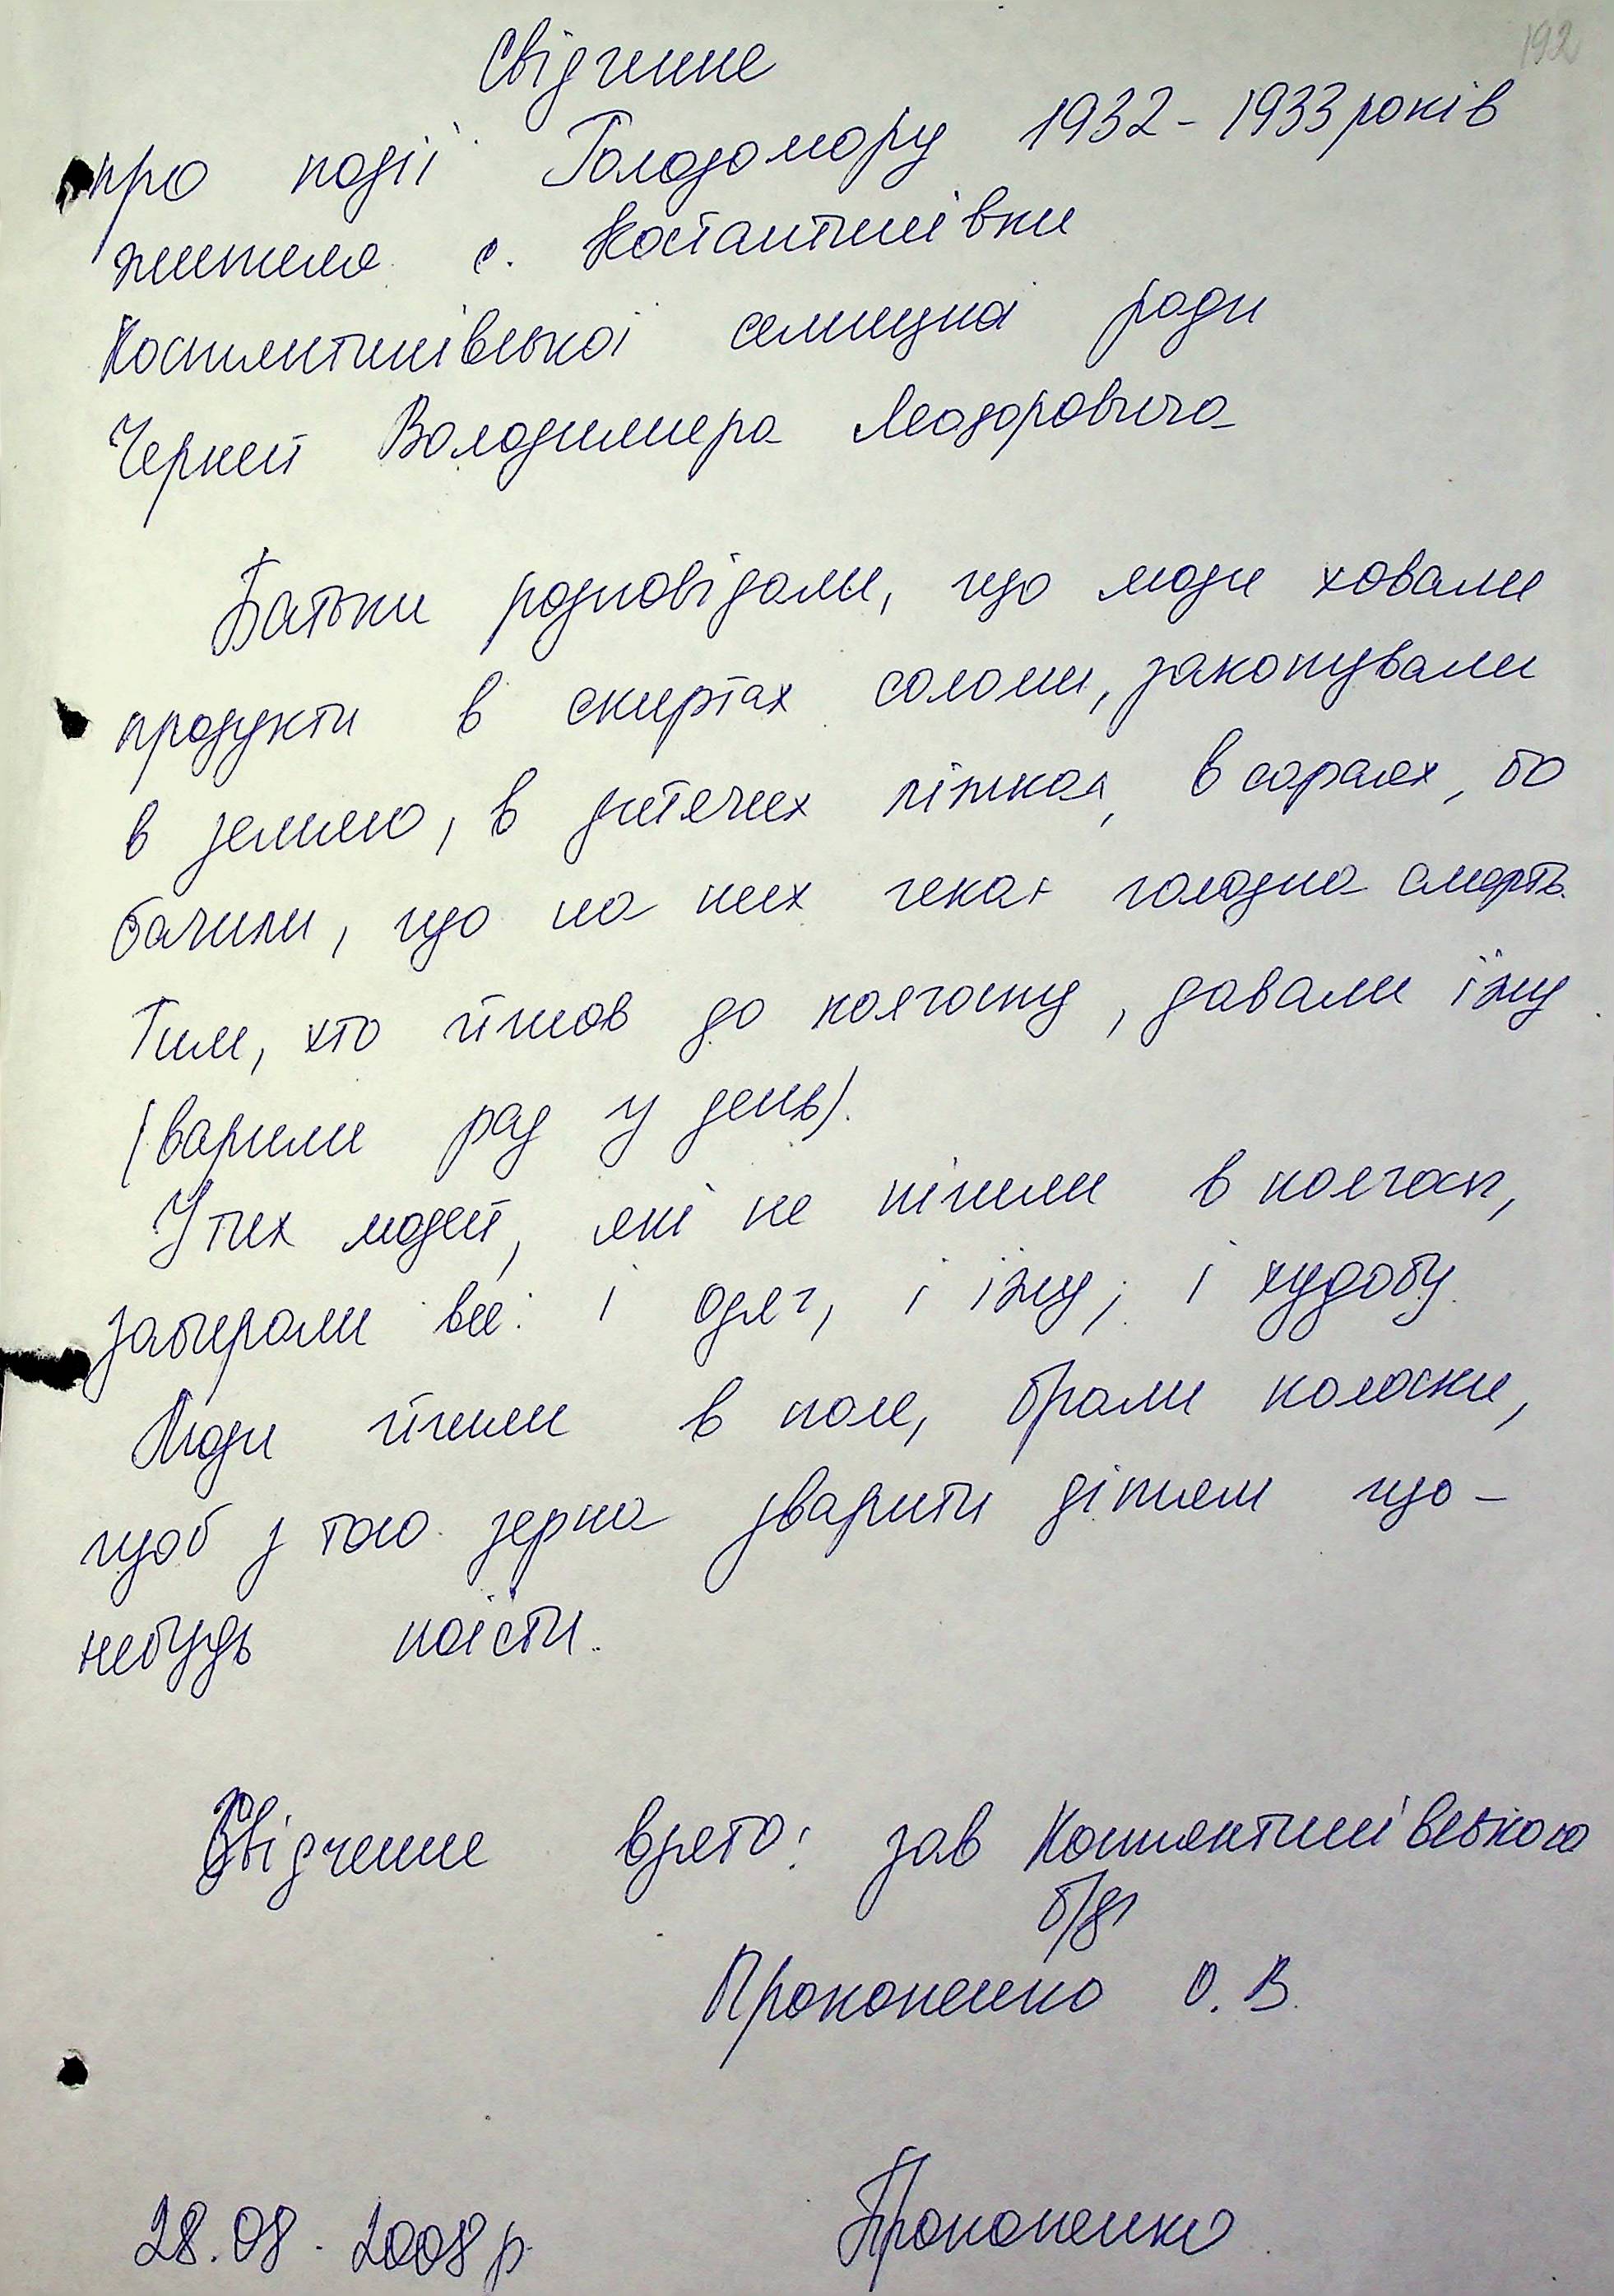 192
Свідчення
про події Голодомору 1932-1933 років
жителя с. Костантинівки
Костянтинівської селищної ради
Черней Володимира Теодоровича
Батьки розповідали, що люди ховали
продукти в скиртах соломи, закопували
в землю, в дитячих ліжках, в сараях, бо
бачили, що на них чекає голодна смерть.
Тим, хто йшов до колгоспу, давали їжу
(варили раз у день).
У тих людей, які не пішли в колгосп,
забирали все: і одяг, і їжу, і худобу.
Люди йшли в поле, брали колоски,
щоб з того зерна зварити дітям що-
небудь поїсти.
Свідчення взято: зав Костянтинівською
б/ф
Прокопенко О. В.
28.08.2008 р. Прокопенко